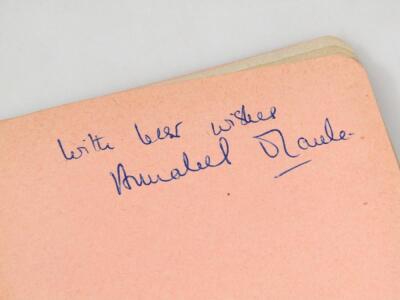 With best wishes
Annabel Maule.